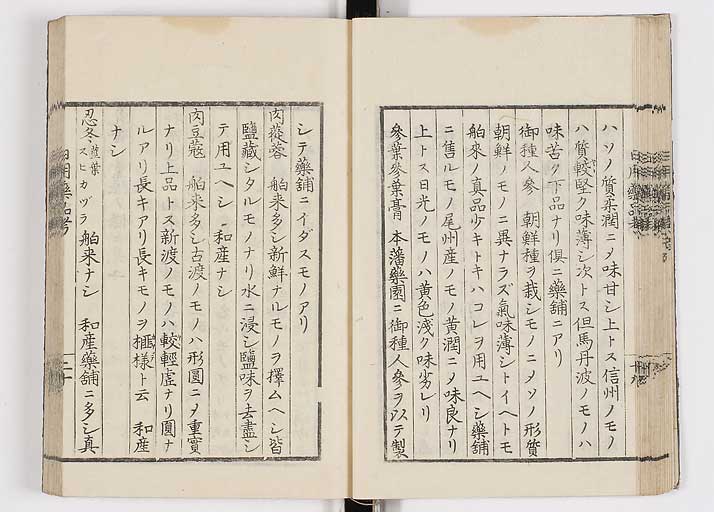 ハソノ質柔潤ニメ味甘シ上トス信州ノモノ
ハ質較堅ク味薄シ次トス但馬丹波ノモノハ
味苦ク下品ナリ倶ニ藥舗ニアリ
御種人參 朝鮮種ヲ栽シモノニメソノ形質
朝鮮ノモノニ異ナラズ氣味薄シトイヘトモ
舶來ノ真品少キトキハコレヲ用ユヘシ藥舗
ニ售ルモノ尾州産ノモノ黄潤ニメ味良ナリ
上トス日光ノモノハ黄色淺ク味劣レリ
參葉參葉膏 本藩藥園ニ御種人參ヲ以テ製
シテ藥舗ニイダスモノアリ
肉蓯蓉 舶来多シ新鮮ナルモノヲ擇ムヘシ皆
鹽藏シタルモノナリ水ニ浸シ鹽味ヲ去盡シ
テ用ユヘシ 和産ナシ
肉豆蔲 舶来多シ古渡ノモノハ形圓ニメ重實
ナリ上品トス新渡ノモノハ較輕虚ナリ圓ナ
ルアリ長キアリ長キモノヲ榧様ト云 和産
ナシ
忍冬 莖葉 スヒカヅラ 舶来ナシ 和産藥舗ニ多シ真
日用藥品考
二十
十九